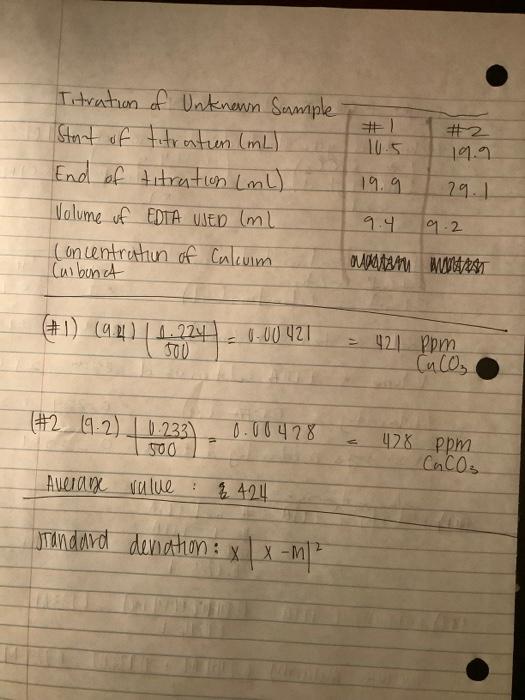 Titration of Unknown Sample
#1 #2
Start of titration (mL) 10.5 19.9
End of titration (mL) 19.9 29.1
Volume of EDTA USED (mL 9.4 9.2
Concentration of Calcuim
Carbonat
(#1) (9.4) (0.224/500) = 0.00421 = 421 ppm
CaCO3
(#2 (9.2) (0.233/500) = 0.00428 = 428 ppm
CaCO3
Average value : 424
standard deviation: x | x -m|²